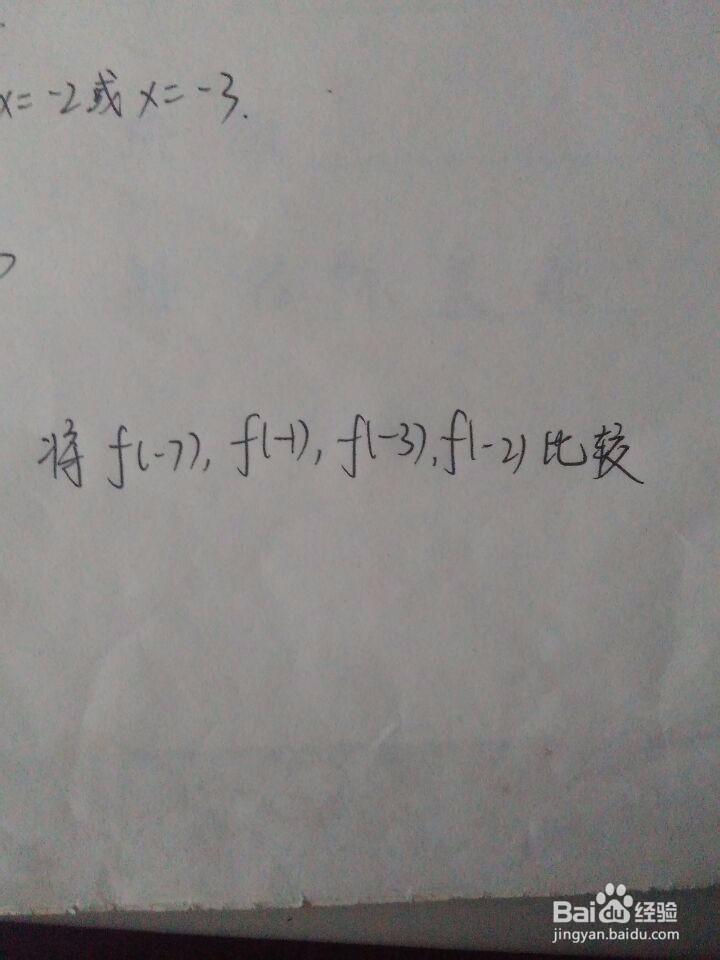 x=-2或x=-3.
将f(-7),f(-1),f(-3),f(-2)比较
Baidu经验
jingyan.baidu.com